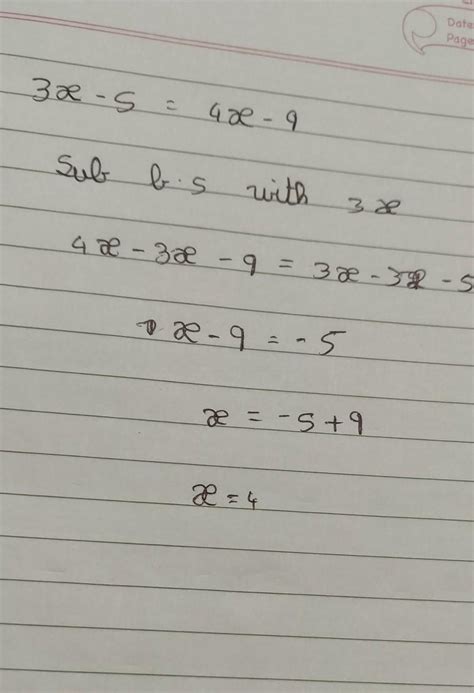 Date
Page
3x - 5 = 4x - 9
Sub b.s with 3x
4x - 3x - 9 = 3x - 3x - 5
x - 9 = - 5
x = -5 + 9
x = 4